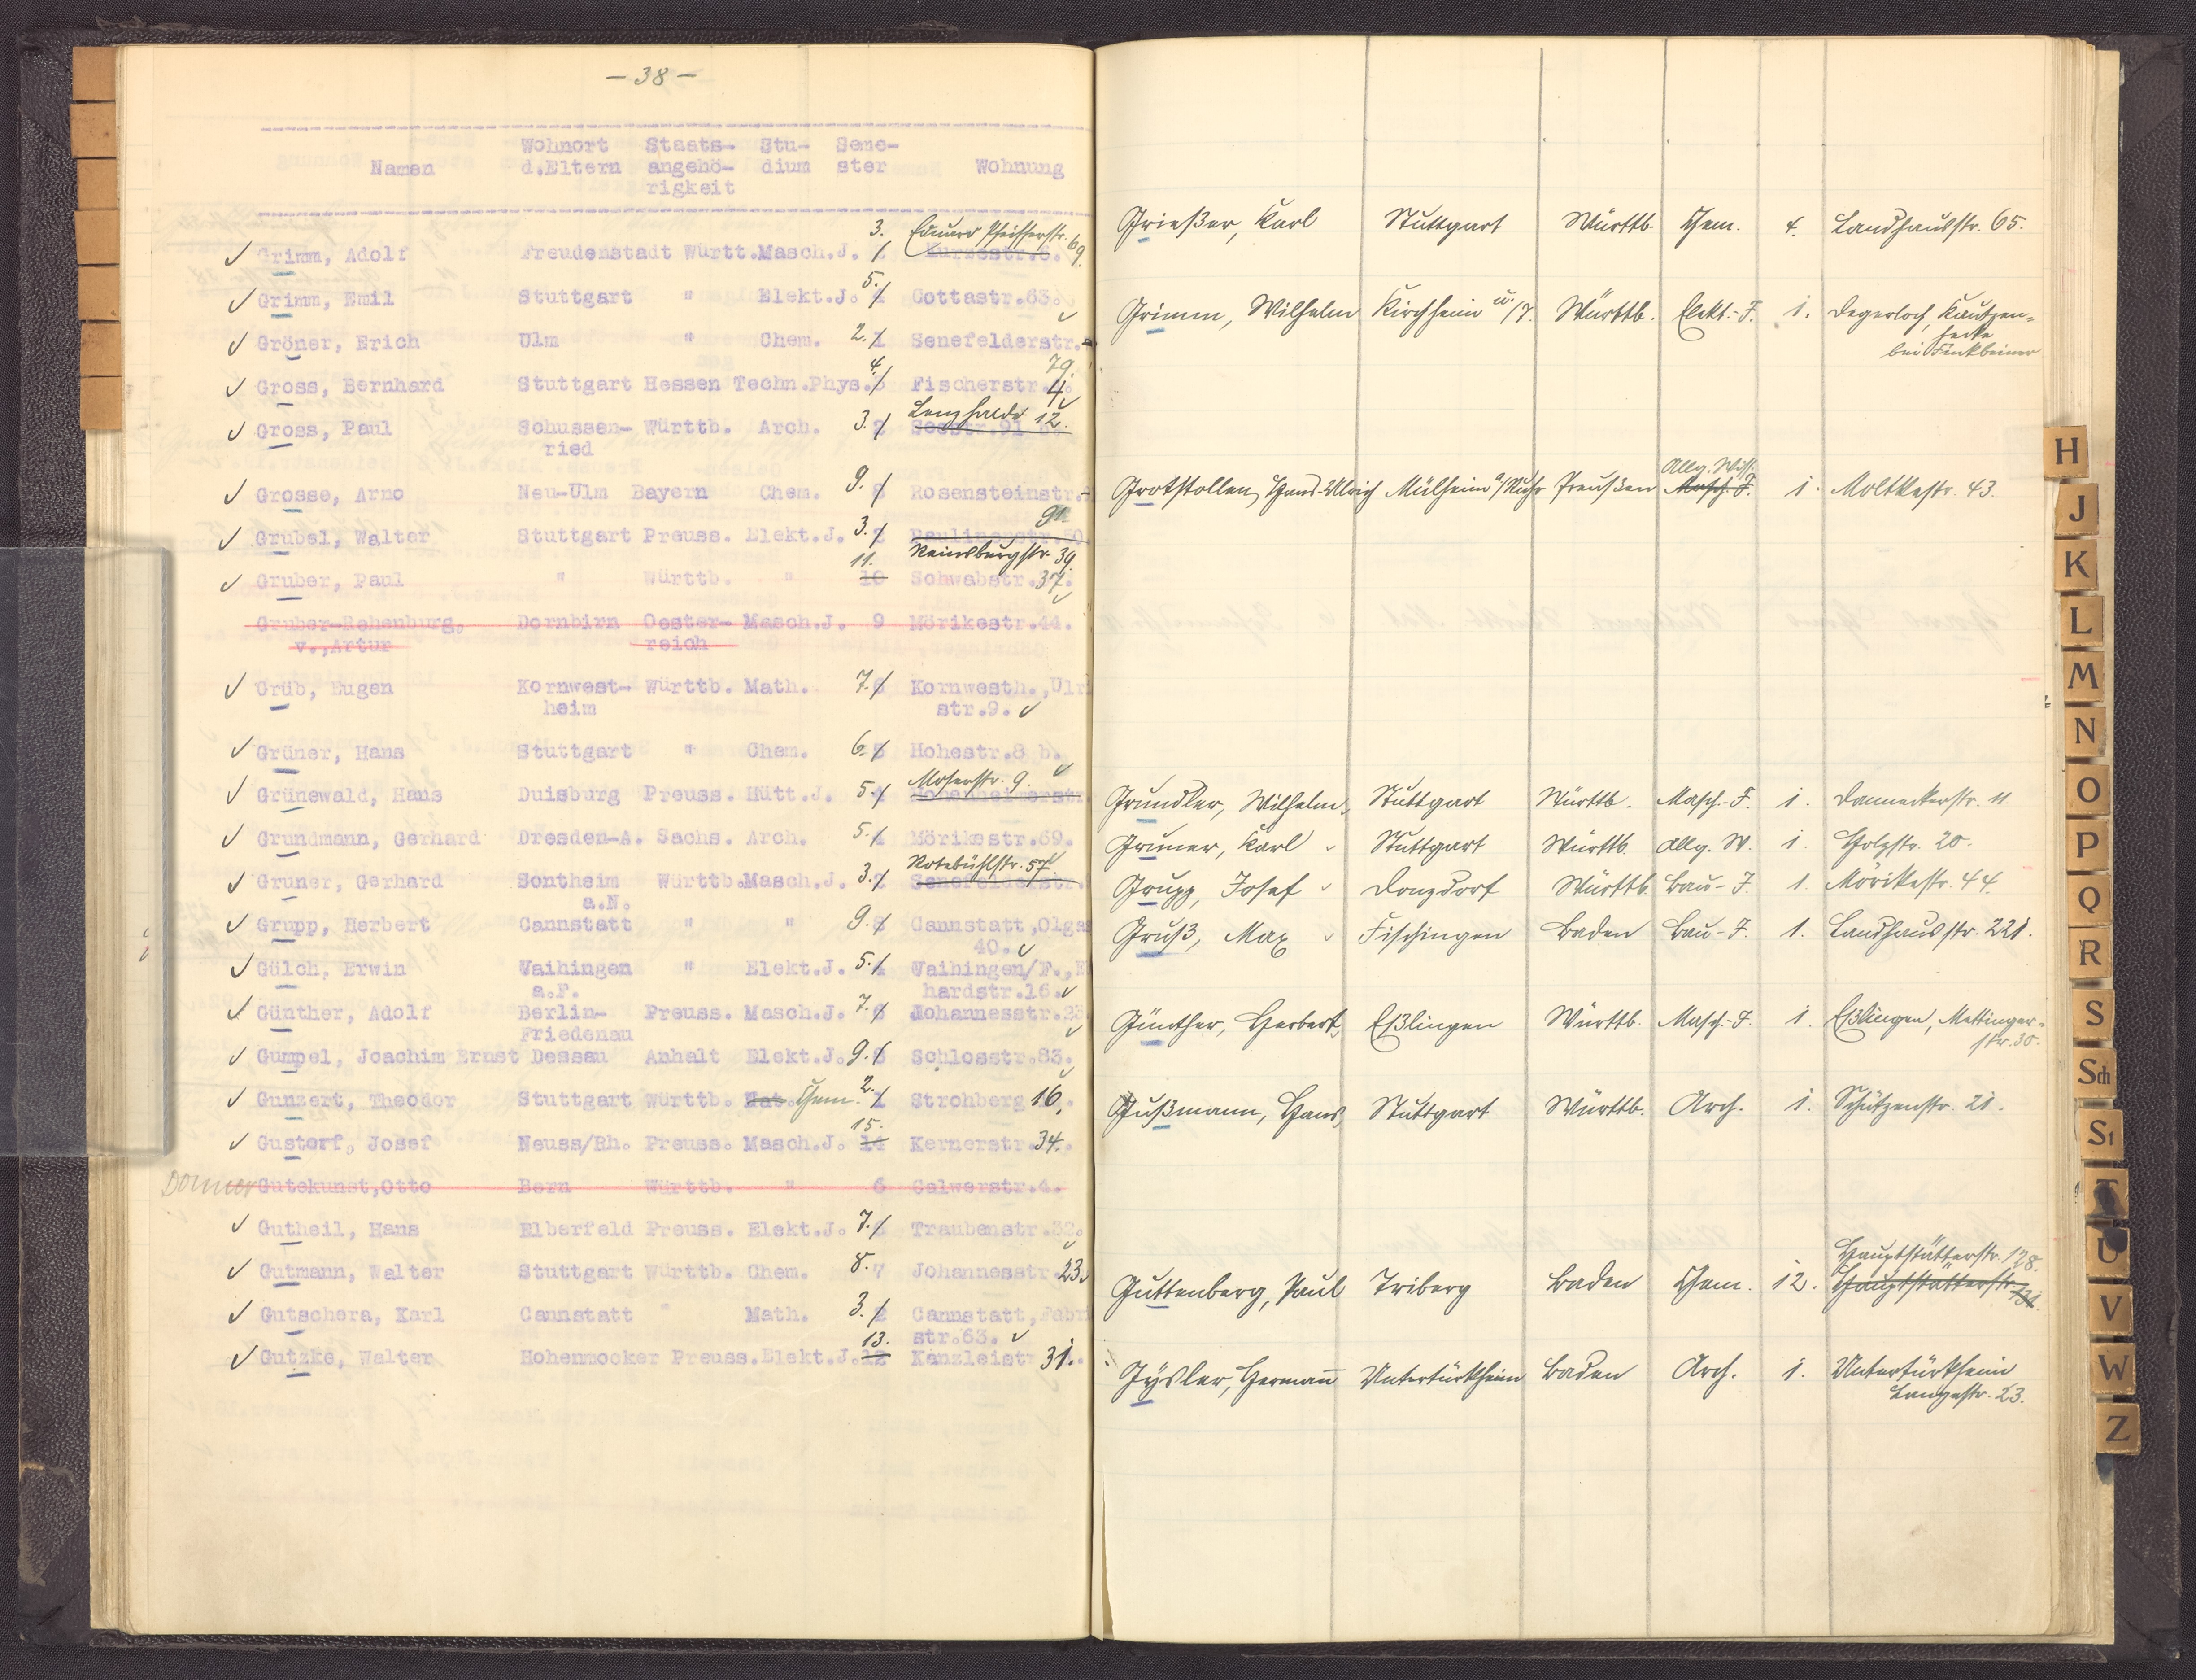 - 38 -
Wohnort Staats- Stu- Seme-
Namen d.Eltern angehö- dium ster Wohnung
rigkeit
3. Eduard Pfeifferstr. 69.
Grimm, Adolf Freudenstadt Württ. Masch.J. Kurzestr.6.
5.
Grimm, Emil Stuttgart " Elekt.J. 4 Cottastr.63.
Gröner, Erich Ulm " Chem. 2. 1 Senefelderstr.
79.
4.
Gross, Bernhard Stuttgart Hessen Techn.Phys. 3 Fischerstr. 4.
Lenzhalde 12.
Gross, Paul Schussen- Württb. Arch. 3. 2
ried
Grosse, Arno Neu-Ulm Bayern Chem. 9. 8 Rosensteinstr.
91.
Grubel, Walter Stuttgart Preuss. Elekt.J. 3. 2 Paulinenstr.50
11. Reinsburgstr. 39.
Gruber, Paul " Württb. " 10 Schwabstr.37.
Gruber-Rehenburg, Dornbirn Oester- Masch.J. 9 Mörikestr.44.
v.,Artur reich
Grüb, Eugen Kornwest- Württb. Math. 7. 6 Kornwesth.,Ulr
heim str.9.
Grüner, Hans Stuttgart " Chem. 6. 5 Hohestr.8 b.
Moserstr. 9.
Grünewald, Hans Duisburg Preuss. Hütt.J. 5. 4 Hohenheimerstr
Grundmann, Gerhard Dresden-A. Sachs. Arch. 5. 4 Mörikestr.69.
Rotebühlstr. 57
Gruner, Gerhard Sontheim Württb. Masch.J. 3. 2 Senefelderstr.
a.N.
Grupp, Herbert Cannstatt " " 9. 8 Cannstatt,Olga
40.
Gölch, Erwin Vaihingen " Elekt.J. 5. 4 Vaihingen/F.,
a.F. hardstr.16.
Günther, Adolf Berlin- Preuss. Masch.J. 7. 6 Johannesstr.23
Friedenau
Gumpel, Joachim Ernst Dessau Anhalt Elekt.J. 9. 8 Schlosstr.83.
Gunzert, Theodor Stuttgart Württb. Nat. Chem. 2. 1 Strohberg 16.
15.
Gustorf, Josef Neuss/Rh. Preuss. Masch.J. 14 Kernerstr. 34.
Gutekunst,Otto Bern Württb. " 6 Calwerstr.4.
Gutheil, Hans Elberfeld Preuss. Elekt.J. 7. 6 Traubenstr.32.
Gutmann, Walter Stuttgart Württb. Chem. 8. 7 Johannesstr. 23.
Gutschera, Karl Cannstatt " Math. 3. 2 Cannstatt,Fabri
str.63.
13.
Gutzke, Walter Hohenmocker Preuss. Elekt.J. 12 Kanzleistr. 31.
Grießer, Karl Stuttgart Württb. Chem. 4. Landhausstr. 65.
Grimm, Wilhelm Kirchheim u/T. Württb. Elekt.-J. 1. Degerloch, Kautzen-
hecke
bei Finkbeiner
Allg. Wiss.
Grotstollen, Hans-Ulrich Mülheim a/Ruhr Preußen Masch.-J. 1. Moltkestr. 43.
Grundler, Wilhelm Stuttgart Württb. Masch.-J. 1. Danneckerstr. 11.
Gruner, Karl Stuttgart Württb Allg. W. 1. Holzstr. 20.
Grupp, Josef Donzdorf Württb. Bau-J. 1. Mörikestr. 44.
Gruß, Max Fischingen Baden Bau-J. 1. Landhausstr. 221.
Günther, Herbert Eßlingen Württb. Masch.-J. 1. Eßlingen, Mettinger-
str. 30.
Gußmann, Hans Stuttgart Württb. Arch. 1. Schützenstr. 21.
Hauptstätterstr. 128.
Guttenberg, Paul Triberg Baden Chem. 12. Hauptstätterstr. 131.
Gysler, Hermann Untertürkheim Baden Arch. 1. Untertürkheim
Langestr. 23.
H
J
K
L
M
N
O
P
Q
R
S
Sch
St
T
U
V
W
Z